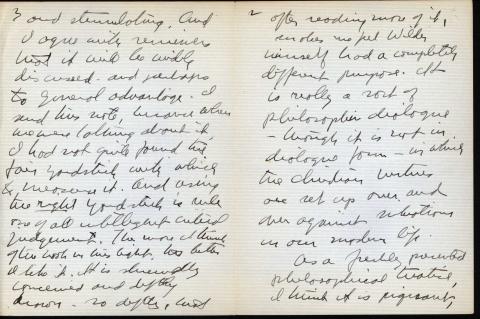 3 and stimulating. And
I agree with reviewers
that it will be widly
discussed - and perhaps
to general advantage. I
said this note, however when
we were talking about it,
I had not quite found the
yardstick with which
to measure it. And using
the right yardstick is rule
one of all intelligent critical
judgement. The more I think
of the book in this light, the better
I like it. It is shrewdly
conceived and deftly
drawn - so deftly, that
2 after reading more of it,
makes me feel Wilder
himself had a completely
different purpose. It
is really a sort of
philosophic dialogue
- though it is not in
dialogue form - in which
the Christian virtues
are set up over and
over against situations
in our modern life.
As a freshly presented
philosophical treatise,
I think it is